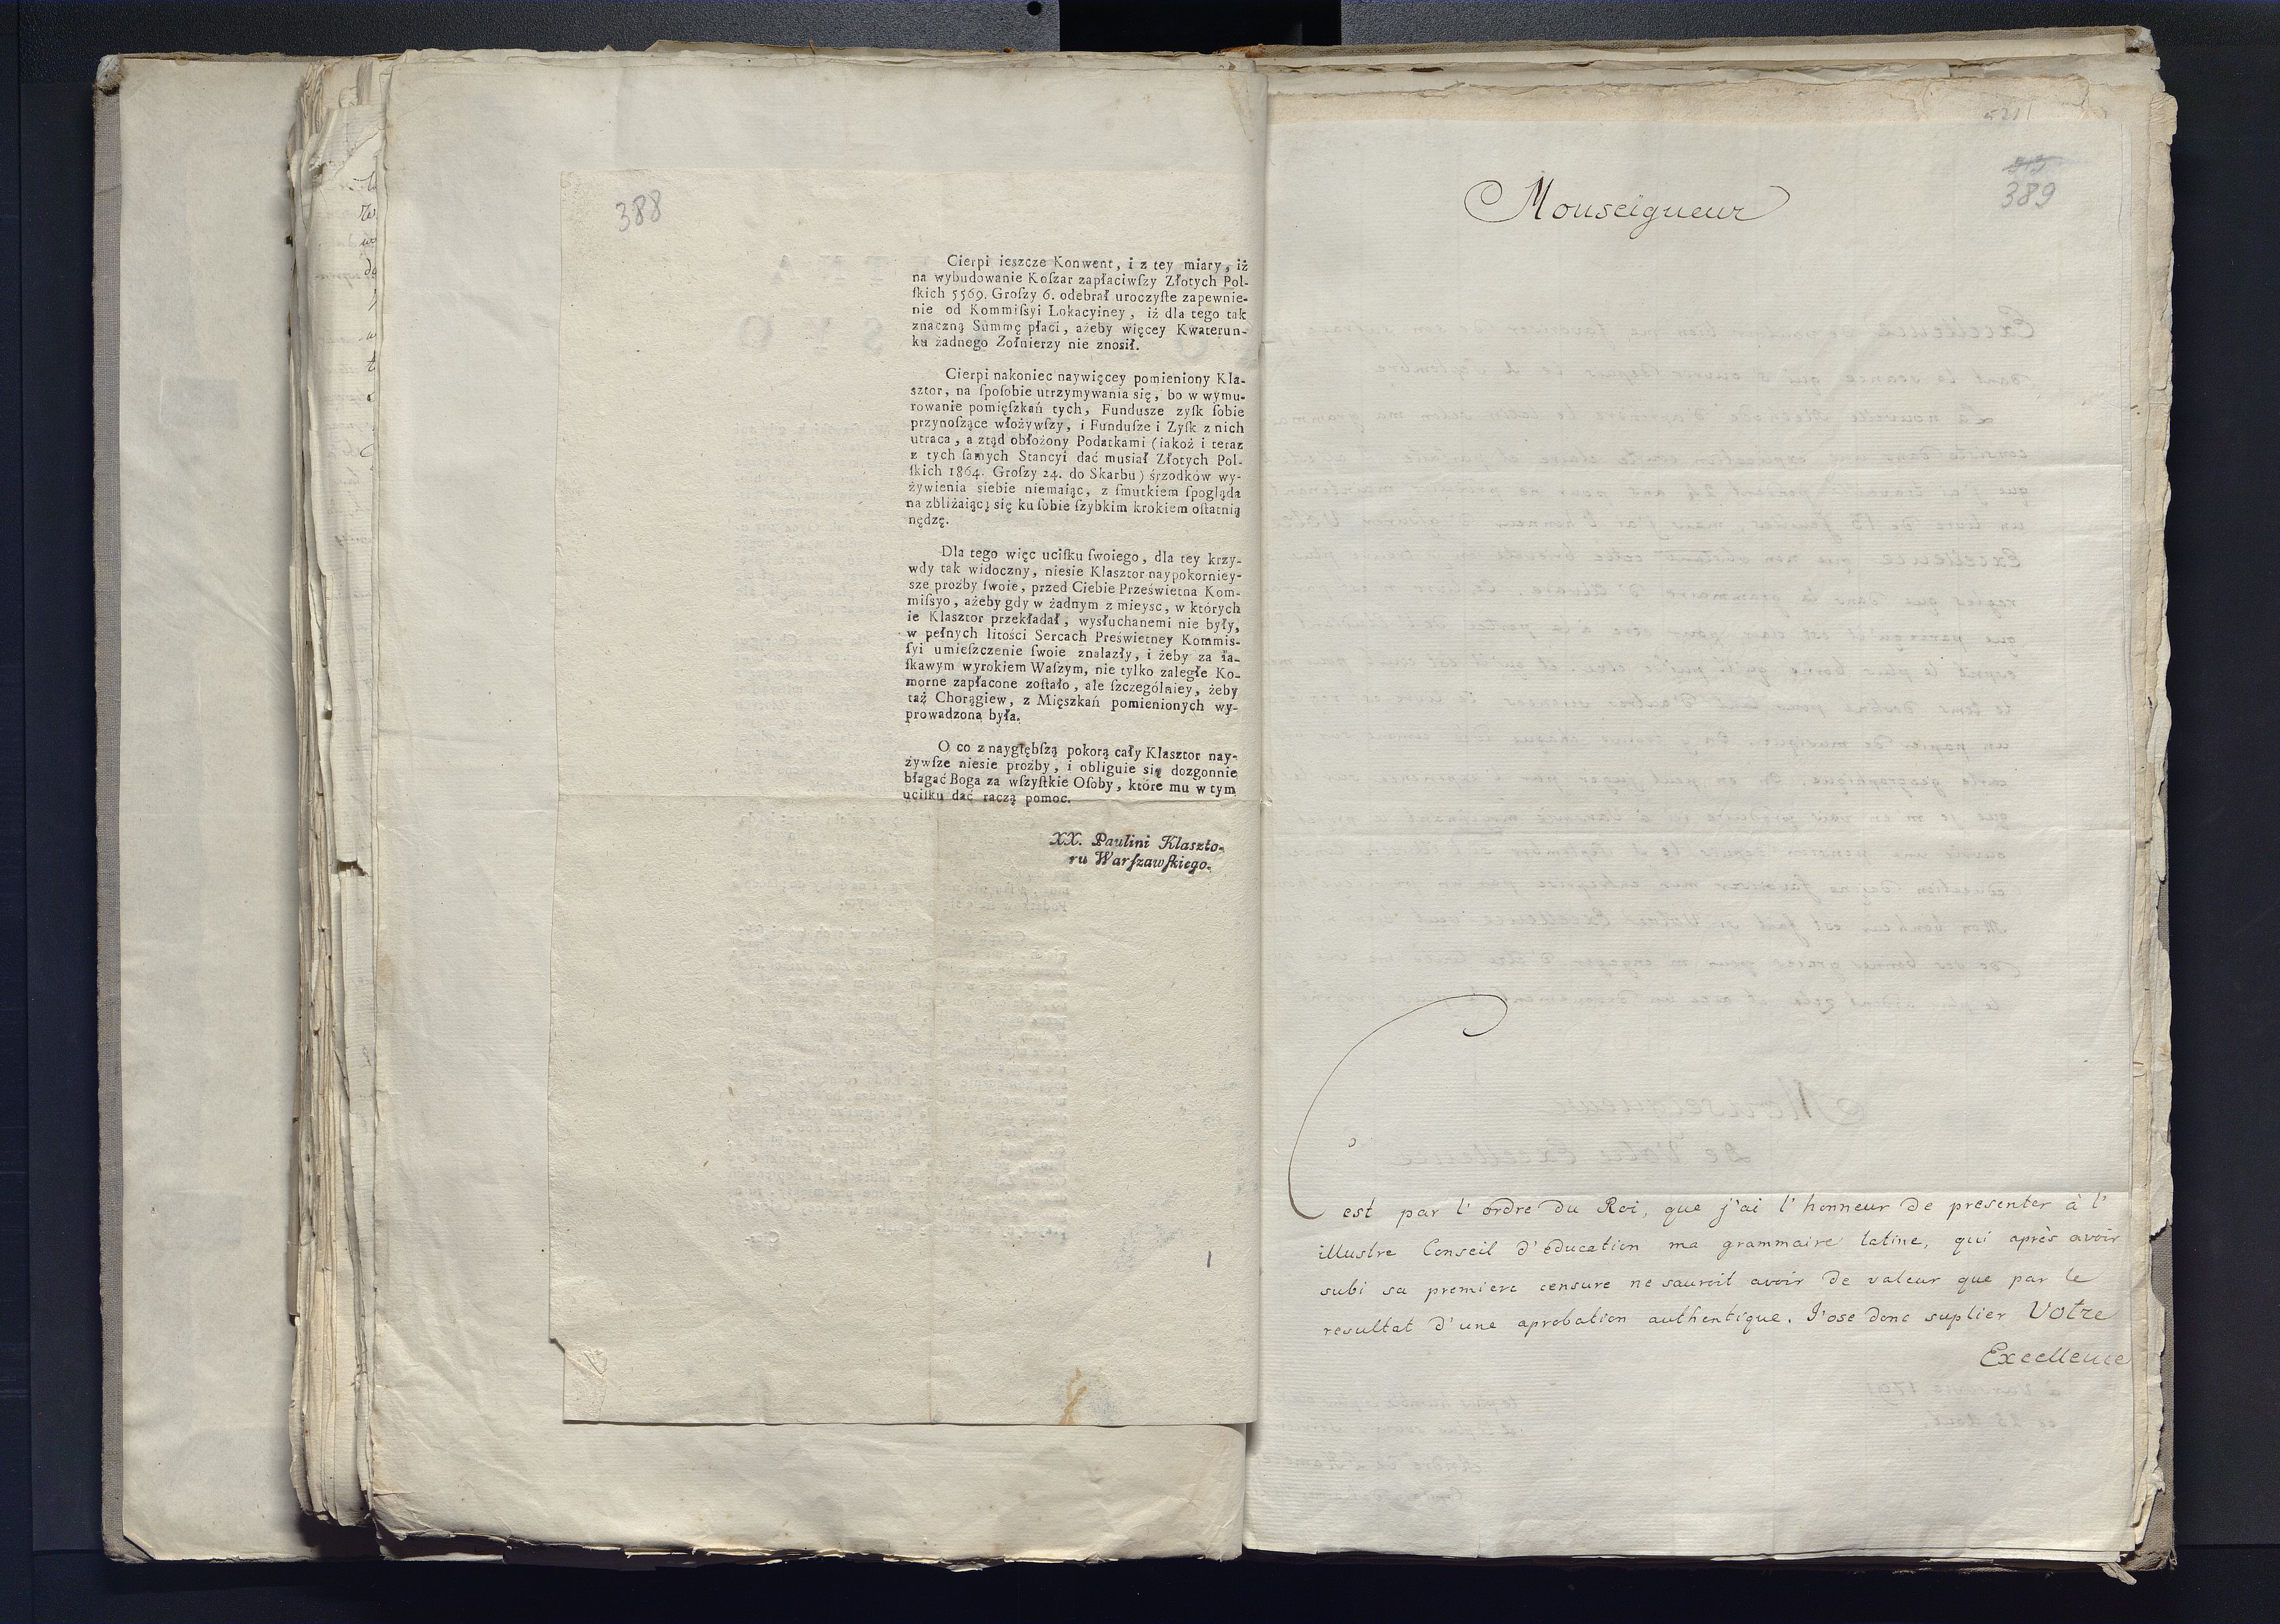 388
Cierpi ieszcze Konwent, i z tey miary, iż
na wybudowanie Koſzar zapłaciwſzy Złotych Pol-
ſkich 5569. Groſzy 6. odebrał uroczyſte zapewnie-
nie od Kommiſsyi Lokacyiney, iż dla tego tak
znaczną Summę płaci, ażeby więcey Kwaterun-
ku żadnego Zołnierzy nie znosił.
Cierpi nakoniec naywięcey pomieniony Kla-
sztor, na ſpoſobie utrzymywania się, bo w wymu-
rowanie pomięſzkań tych, Fundusze zyſk ſobie
przynoſzące włożywſzy, i Funduſze i Zyſk z nich
utraca, a ztąd obłożony Podatkami (iakoż i teraz
z tych ſamych Stancyi dać musiał Złotych Pol-
ſkich 1864. Groſzy 24. do Skarbu) śrzodków wy-
żywienia siebie niemaiąc, z ſmutkiem ſpogląda
na zbliżaiącą się ku ſobie ſzybkim krokiem oſtatnią
nędzę.
Dla tego więc uciſku ſwoiego, dla tey krzy-
wdy tak widoczny, niesie Klasztor naypokorniey-
sze proźby ſwoie, przed Ciebie Prześwietna Kom-
miſsyo, ażeby gdy w żadnym z mieysc, w których
ie Klasztor przekładał, wysłuchanemi nie były,
w pełnych litości Sercach Preświetney Kommis-
ſyi umieſzczenie ſwoie znalazły, i żeby za ła-
ſkawym wyrokiem Waſzym, nie tylko zaległe Ko-
morne zapłacone zoſtało, ale ſzczególniey, żeby
taż Chorągiew, z Mięszkań pomienionych wy-
prowadzona była.
O co z naygłębſzą pokorą cały Klasztor nay-
żywſze niesie proźby, i obliguie się dozgonnie
błagać Boga za wſzyſtkie Oſoby, które mu w tym
uciſku dać raczą pomoc.
XX. Paulini Klaszto-
ru Warſzawſkiego.
389
Monseigneur
C'est par l'ordre du Roi, que j'ai l'honneur de presenter à l'
illustre Conseil d'éducation ma grammaire latine, qui après avoir
subi sa premiere censure ne sauroit avoir de valeur que par le
resultat d'une aprobation authentique. J'ose donc suplier Votre
Excellence